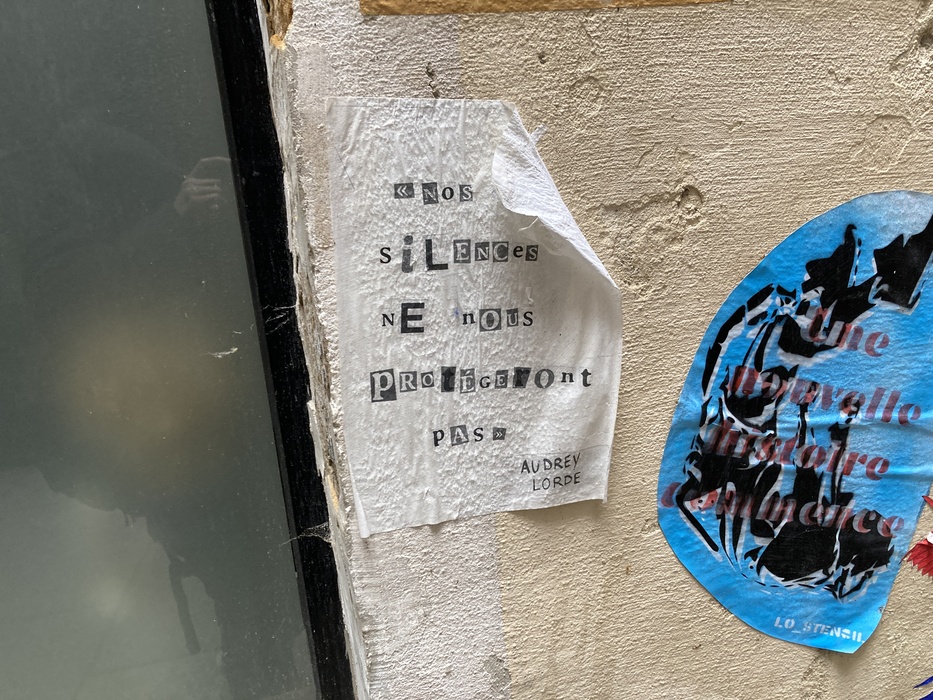 « NOS
SiLENCes
NE nOUS
PROTÉGERONt
PAS »
AUDREY
LORDE
une
nouvelle
histoire
commence
LO_STENCIL